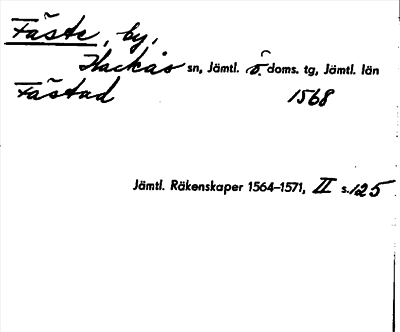 Fäste, by,
Hackås sn, Jämtl. ö. doms. tg, Jämtl. län
Fästad 1568
Jämtl. Räkenskaper 1564–1571, II s. 125